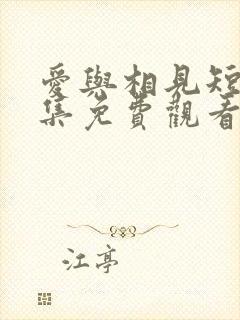 愛與相見短
集免費觀看
江亭